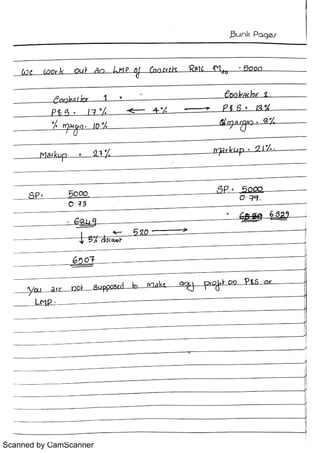 Bunk Pages
We work out An LMP of Concrete RMC M30 - 8000
Contractor 1 Contractor 2
P&S - 17% ← 4% → P&S - 13%
% margin - 10% % margin - 8%
Markup = 27% markup - 21%
SP - 5000 SP - 5000
0.73 0.79
- 6849 - 6329
↓ 5% discount ← 520 →
6507
You are not supposed to make any profit on P&S or
LMP.
Scanned by CamScanner